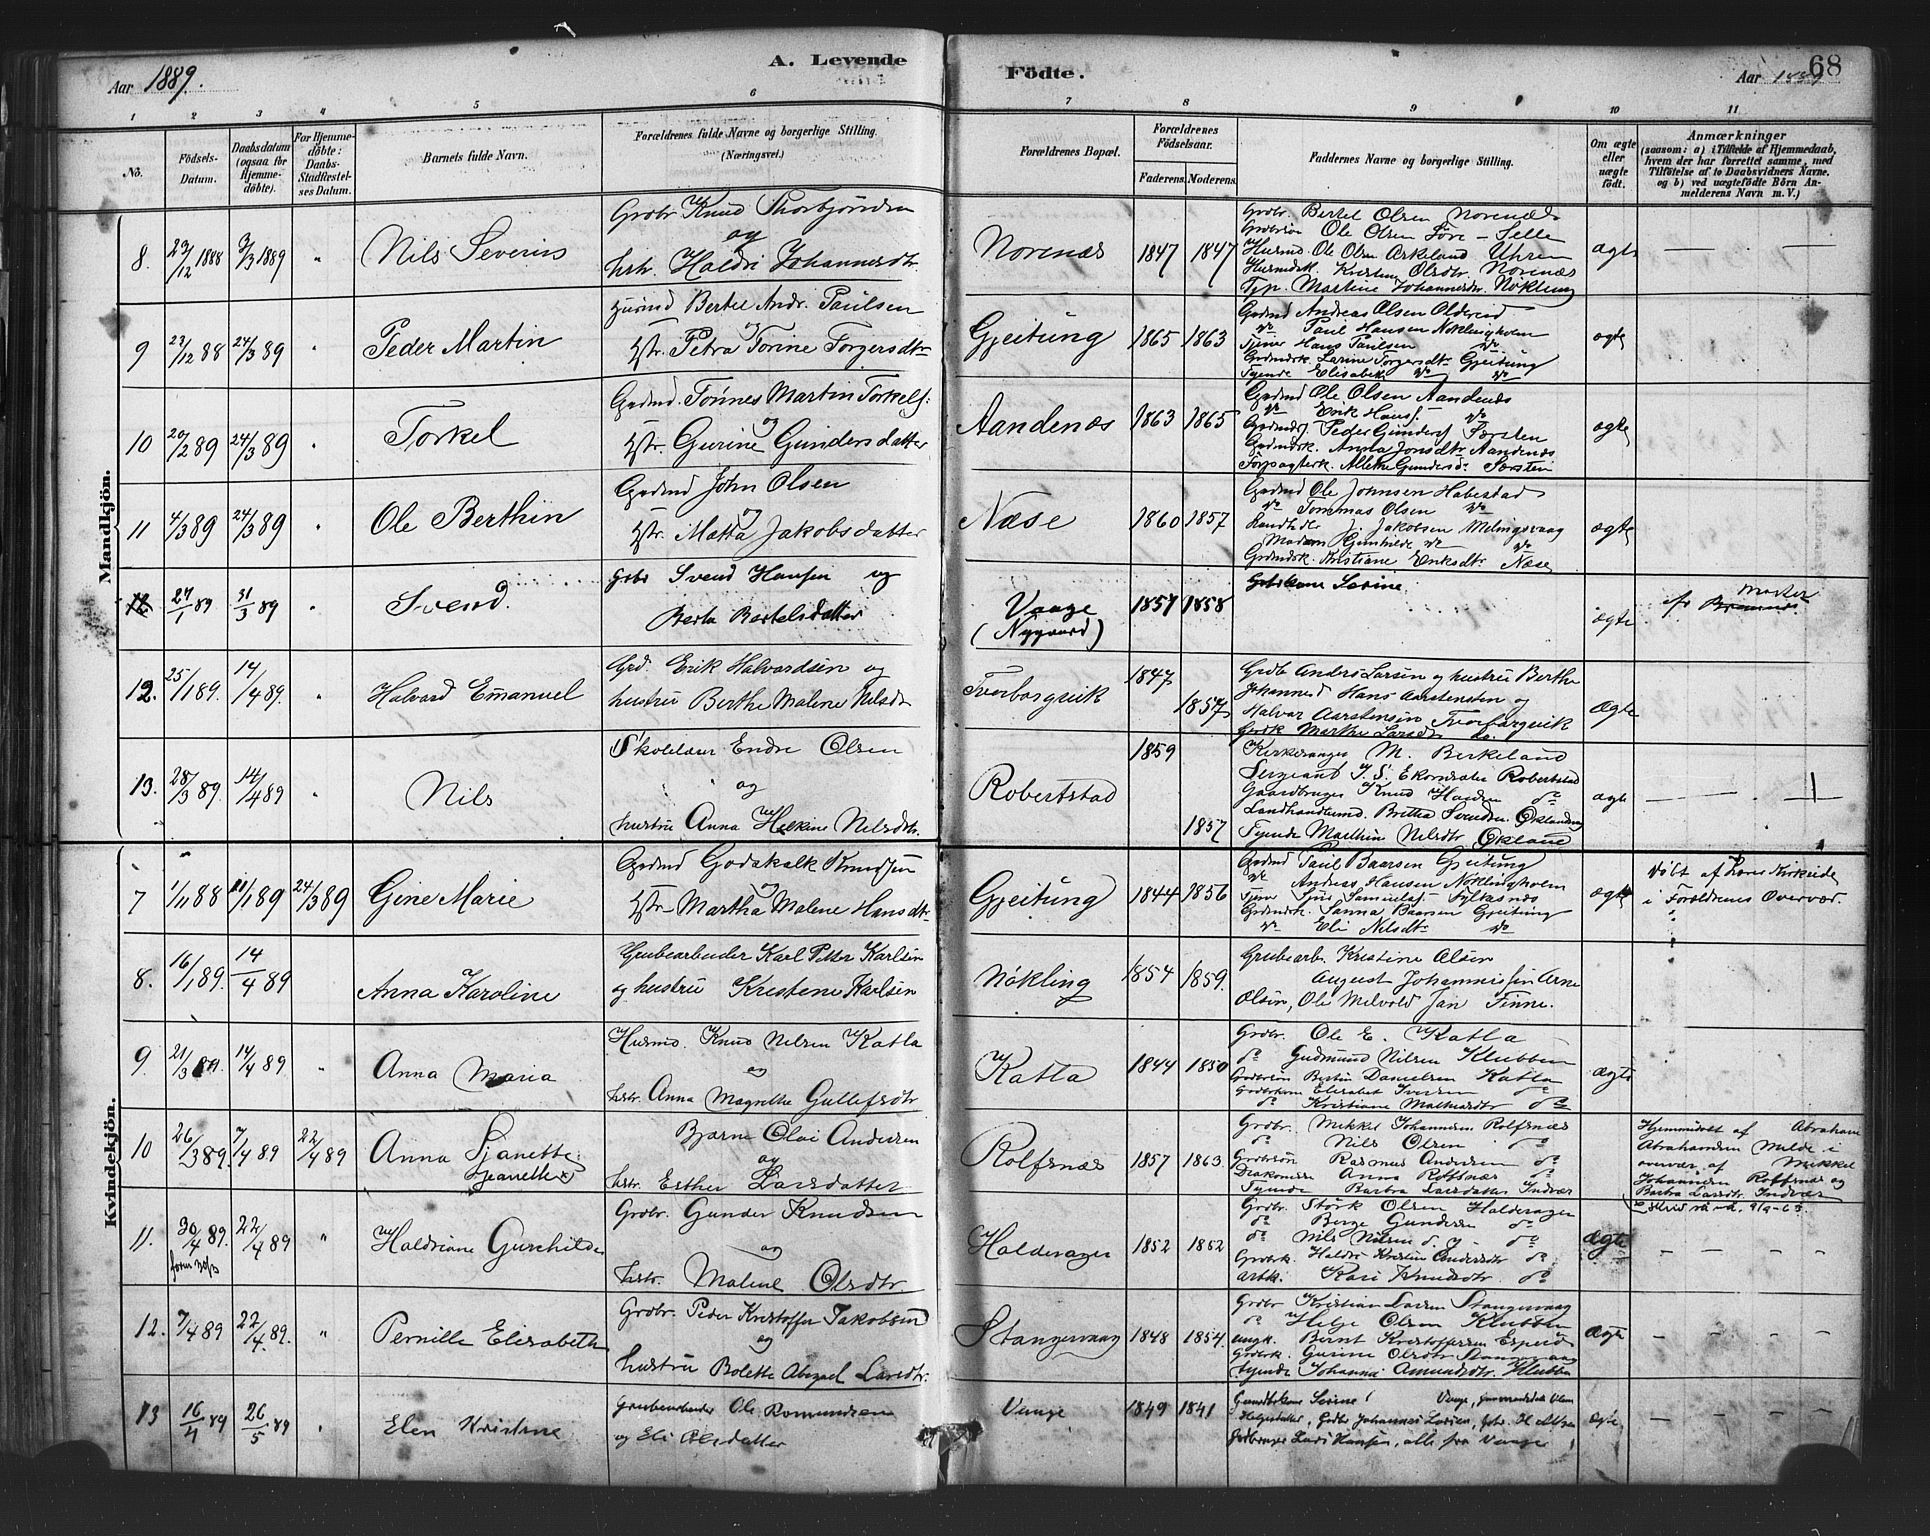 Aar 1889.
A. Levende
Födte.
Aar 1889
68
1 2 3 4 5 6 7 8 9 10 11
No.
Födsels-Datum.
Daabsdatum (ogsaa for Hjemme-döbte).
For Hjemme-döbte: Daabs-Stadfæstel-ses Datum.
Barnets fulde Navn.
Forældrenes fulde Navne og borgerlige Stilling.
(Næringsvei.)
Forældrenes Bopæl.
Forældrenes Födselsaar.
Faderens. Moderens.
Faddernes Navne og borgerlige Stilling.
Om ægte eller uægte födt.
Anmærkninger
(saasom: a) i Tilfælde af Hjemmedaab,
hvem der har forrettet samme, med
Tilföielse af to Daabsvidners Navne.
og b) ved uægtefödte Börn An-
melderens Navn m. V.)
Mandkjön.
8. 29/12 1888 3/3 1889 " Nils Severin
Grdbr Knud Thorbjörnsen
og
hstr. Haldri Johannesdtr.
Norenæs 1847 1847
Grdbr. Bertel Olsen Norenæs
Grdbrsön Ole Olsen Söre-Selle
Husmd Ole Olsen Askeland Uhren
Husmdsk. Kristine Olsdtr. Norenæs
Typ. Martine Johannesdr. Nökling
ægte — — —
9 22/12 88 24/3 89 " Peder Martin
Husmd Bertel Andr. Paulsen
og
Hstr. Petra Torine Torgersdtr
Gjeitung 1865 1863
Grdmd Andreas Olsen Oldereid
do Paul Hansen Nöklingholm
Tjener Hans Paulsen do
Grdmdsk. Larine Torgersdtr Gjeitung
Tyende Elisabet do do
ægte
10 20/2 89 24/3 89 " Torkel
Grdmd. Tönnes Martin Torkels:
og
Hstr. Gurine Gundersdatter
Aandenæs 1863 1865
Grdmd Ole Olsen Aandenæs
do Erik Hans: do
Peder Gunders
Grdmdsk. Anna Jonsdtr. Aandenæs
Alletke Gundersd.
ægte
11 4/3 89 24/3 89 " Ole Berthin
Grdmd John Olsen
og
Hstr. Matta Jakobsdatter
Næse 1860 1857
Grdmd Ole Johnsen Habestad
do Tommas Olsen do
Landhdlr J. Jakobsen Melingsvaag
Madam do do
Grdmdsk. Kristiane Eriksdtr. Næse
ægte
12 27/1 89 31/3 89 " Svend.
Grbr Svend Hansen og
Berta Bertelsdatter
Vaage
(Nygaard)
1857 1858
Grdbkone Serine
ægte
12. 25/1 89. 14/4 89. " Halvard Emanuel
Grd. Erik Halvardsen og
hustru Berthe Malene Nilsdr
Tverborgvik 1847 1857
Grdb Anders Larsen og hustru Berthe
Johannesd Hans Aarstensen og
Halvar Aarstensen Tverborgvik
Grdk Marthe Larsdr do.
ægte
13. 28/3 89. 14/4 89 " Nils
Skolelærer Endre Olsen
og
hustru Anna Helkine Nilsdtr.
Robertstad 1859 1857
Kirkesanger M. Berkeland
Sergeant J. S. Robertstad
Gaardbruger Knud do
Landhandlermd. Britha Svendsen Ökland
Tyende Nilsdtr Ökland
ægte — — . — 1
Kvindekjön.
7 1/11 88 11/1 89 24/3 89 Gine Marie
Grdmd Godskalk Knudsen
og
Hstr. Martha Malene Hansdtr
Gjeitung 1844 1856
Grdmd Paul Baarsen Gjeitung
do Andreas Hansen Nöklingholm
Tjen. Sjur Samuels. Fylkesnæs
Grdmdsk. Sanna Baarsen Gjeitung
do Eli Nilsdtr. do
ægte
Döbt af Lars Kirkeide
i Foreldrenes Overvær.
8. 16/1 89. 14/4 89 Anna Karoline
Grubearbeider Karl Petter Karlsen
og hustru Kristene Karlsen
Nökling 1854 1859.
Grubearb. Kristine Olsen
August Johannessen Arne
Olsen, Ole Melvold Jan Finne.
9. 21/3 89. 14/4 89. " Anna Maria
Husmd. Knud Nilsen Katla
og
hstr. Anna Magrethe Gullefsdtr
Katla 1844 1850
Grdbr. Ole E. Katla
do Gudmund Nilsen Klubben
Grdbrsön Bertin Danielsen Katla
Grdbrkone Elisabet Iversen do
do Kristiane Matheasdtr do
ægte
10 26/3 89. 7/4 89 22/4 89 Anna Sjanette:
Sjeanette x)
Bjarne Olai Andersen
og
hstr. Esther Larsdatter
Rolfsnæs 1857 1863.
Grdbr. Mikkel Johannesen Rolfsnæs
do Nils Olsen do
Grdbrsön Rasmus Andersen do
Anna Rolfsnæs
Tyende Barbra Larsdatter Indvær
Hjemmdöbt af Abraham
Abrahamsen Melde i
overvær af Mikkel
Johannesen Rolfsnæs og
Barbra Larsdtr. Indvær
11. 30/4 89. 22/4 89 " Haldriane Gurchilde
Grdbr. Gunder Knudsen
og
hstr. Malene Olsdtr.
Haldorager 1852 1852
Grdbr. Störk Olsen Haldorager
do Berge Gundersen do
do Nils Nilsen d. y. do
Grdbk. Haldri Kristine Andersdtr do
arbk. Kari Knudsdtr. do
ægte — — —
12. 7/4 89 22/4 89. " Pernille Elisabeth
Grdbr. Peder Kristoffer Jakobsen
og
hustru Bolette Abigael Larsdtr.
Stangervaag 1848 1854.
Grdbr Kristian Larsen Stangervaag
do Helge Olsen Klubben
ungk. Bernt Kristoffersen Espeid
Grdbrk. Gurine Olsdtr Stangervaag
tyende Johanna Amundsdtr. Klubben
ægte — — —
13 16/4 89 26/5 89 " Elen Kristine
Grubearbeider Ole Romundsen
og Eli Olsdatter
Vaage 1849 1841
Gaardbrkone Serine Vaage,
Helgesdatter, Grdbr Johannes Larsen,
Gardbruger Lars Hansen, alle fra Vaage
ægte — — —